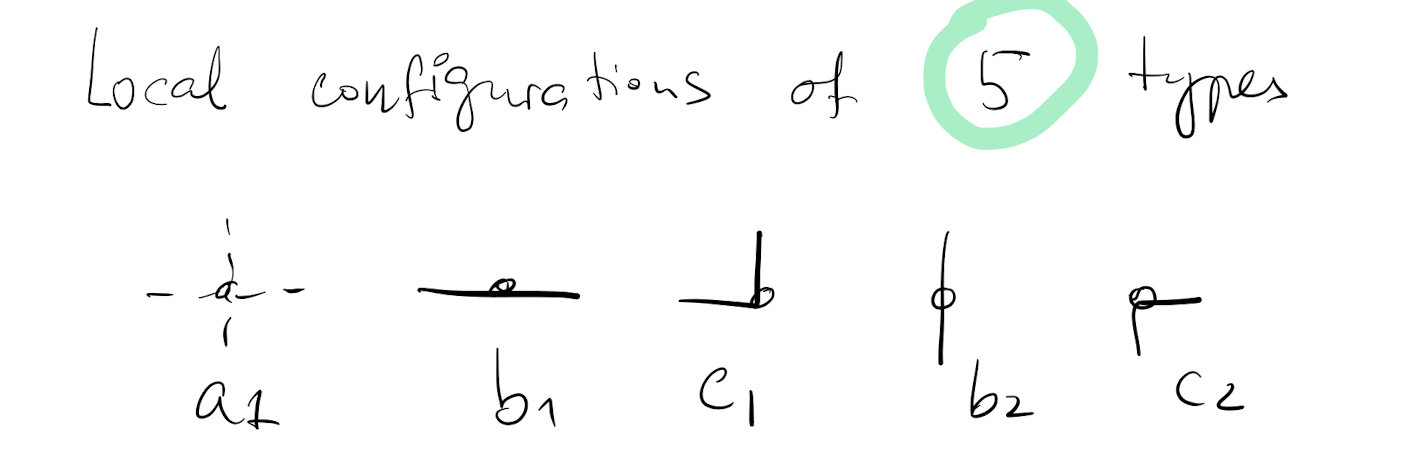 Local configurations of 5 types
a1 b1 c1 b2 c2